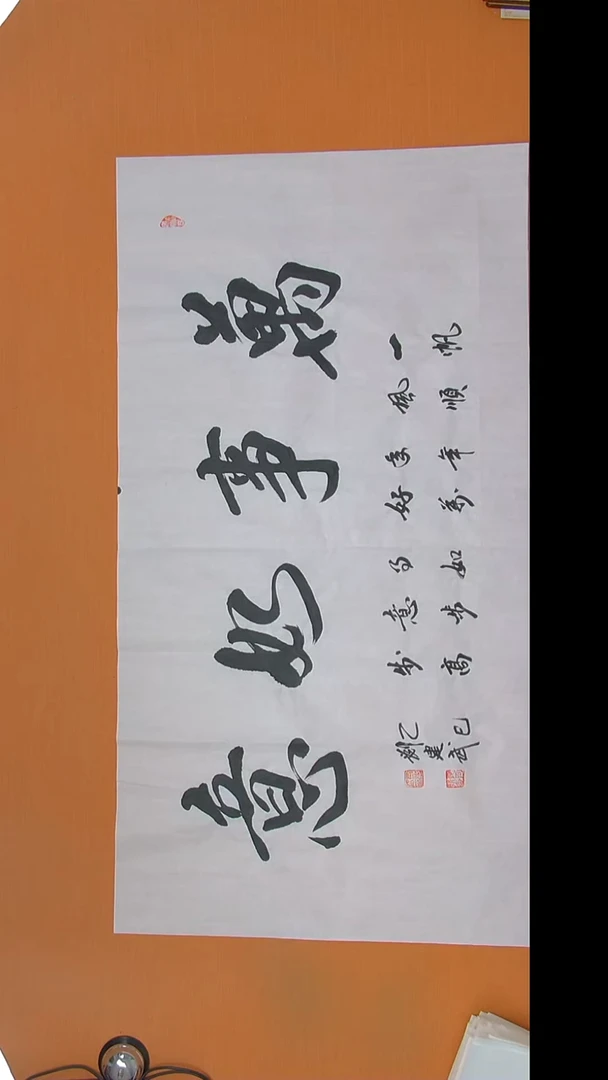 萬事如意
一帆
風順
年年
好萬
事如
意步
步高
乙巳
建武